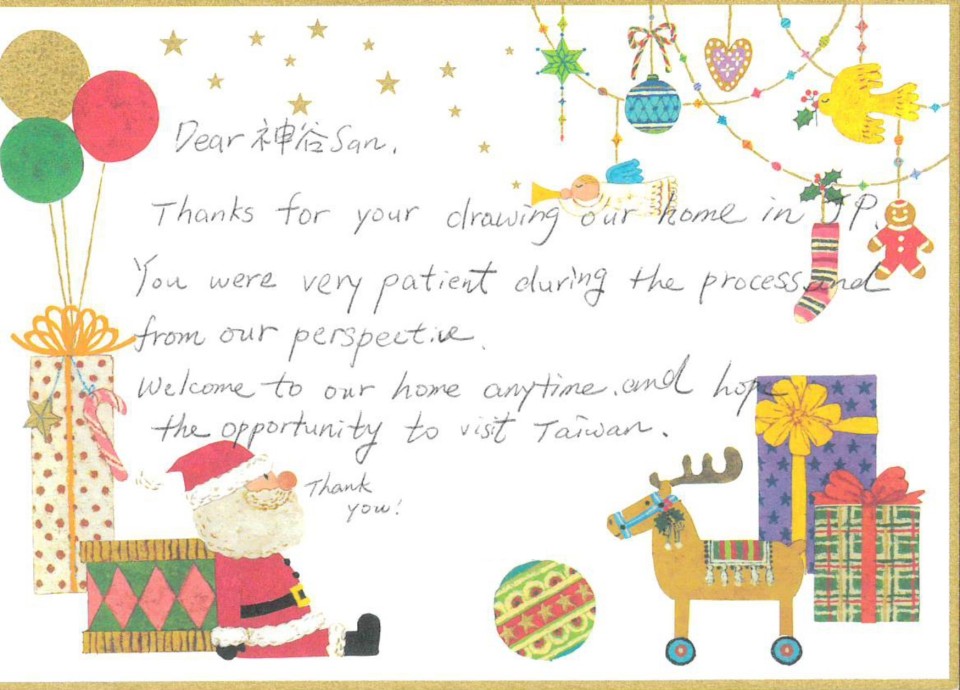 Dear 神谷 San.
Thanks for your drawing our home in JP.
You were very patient during the process, and
from our perspective.
Welcome to our home anytime. and hope
the opportunity to visit Taiwan.
Thank
you!